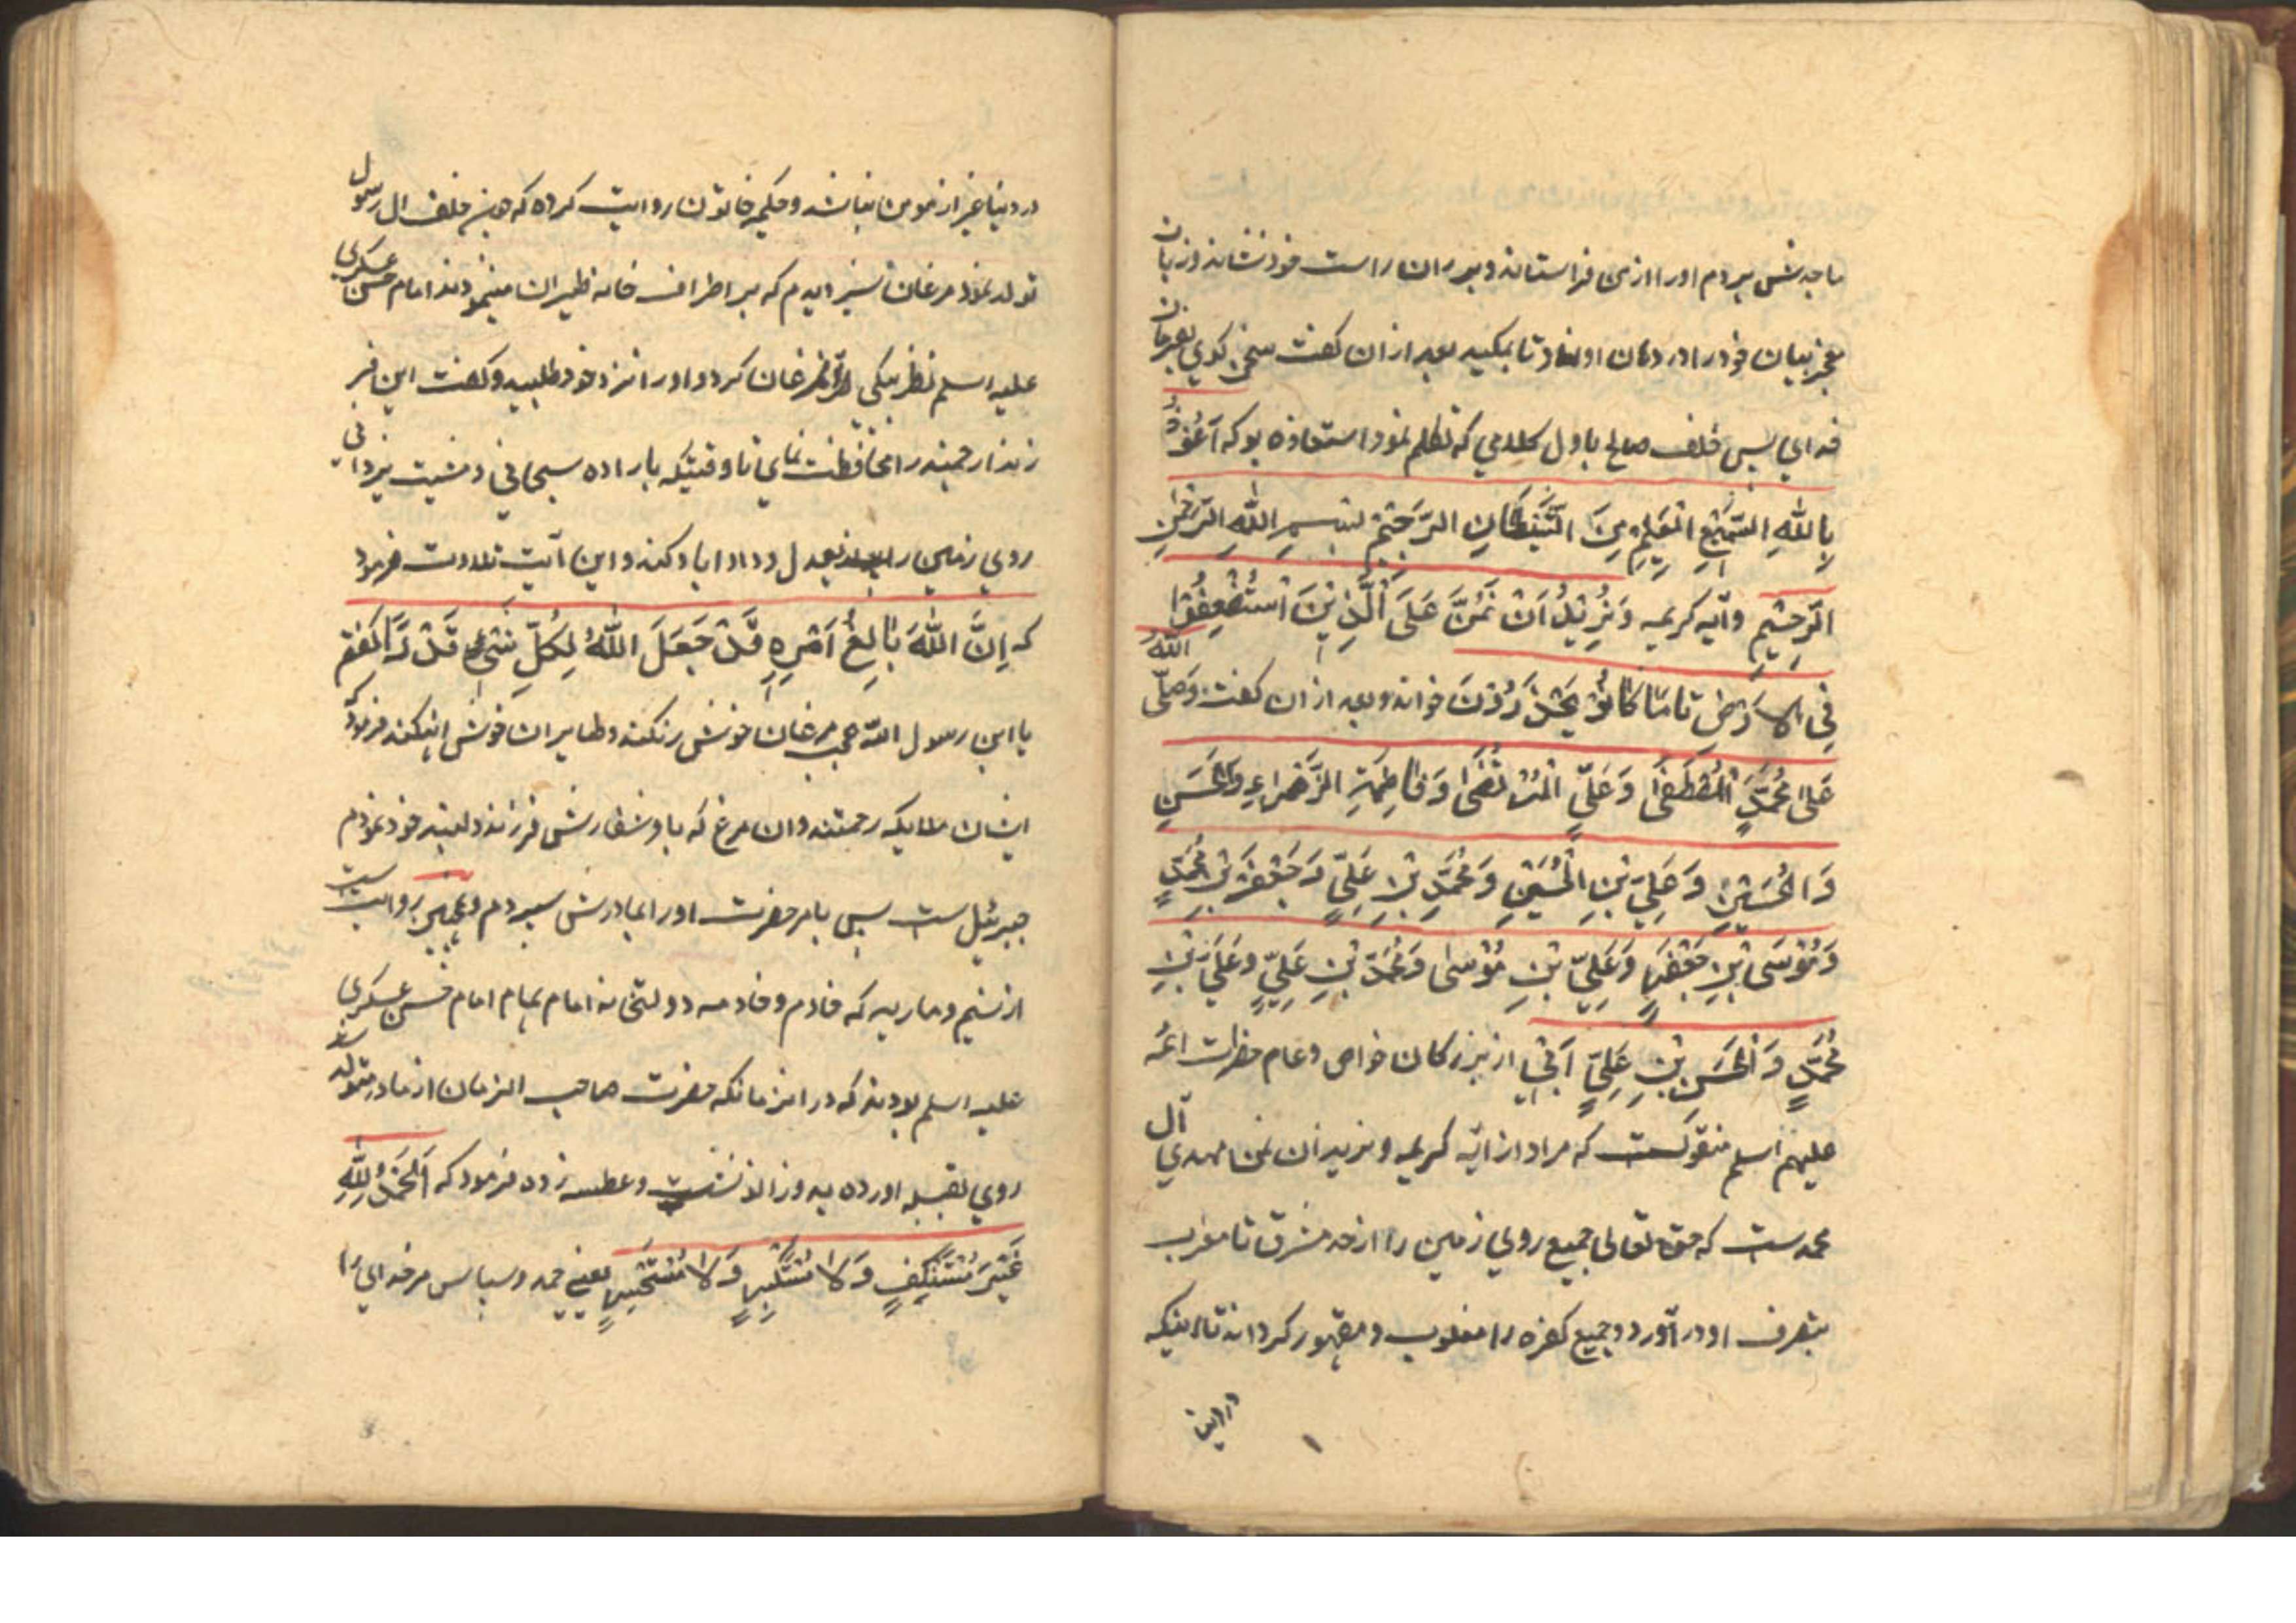 ماجدش بردم اورا ازمن فراستاند وبر ران راست خود نشاند وزبان
معجز بیان خود را در دهان او نهاد تا بمکید بعد ازان کفت سخن کوي بفرمان
خداي پس خلف صالح باول کلامي که تکلم نمود استعاذه بو که اَعُوْذُ
بِاللّٰهِ السَّمِيْعِ الْعَلِيْمِ مِنَ الشَّيْطَانِ الرَّجِيْمِ بِسْمِ اللّٰهِ الرَّحْمٰنِ
الرَّحِيْمِ وآیه کریمه وَنُرِيْدُ اَنْ نَمُنَّ عَلَى الَّذِيْنَ اسْتُضْعِفُوْا
فِي الْاَرْضِ تا مَا كَانُوْ يَحْذَرُوْنَ خواند وبعد ازان کفت وَصَلَّى اللّٰهُ
عَلىٰ مُحَمَّدٍ الْمُصْطَفٰى وَعَلِيٍّ الْمُرْتَضٰى وَفَاطِمَةِ الزَّهْرَاءِ وَالْحَسَنِ
وَالْحُسَيْنِ وَعَلِيِّ بْنِ الْحُسَيْنِ وَمُحَمَّدِ بْنِ عَلِيٍّ وَجَعْفَرَ بْنِ مُحَمَّدٍ
وَمُوْسَى بْنِ جَعْفَرٍ وَعَلِيِّ بْنِ مُوْسٰى وَمُحَمَّدِ بْنِ عَلِيٍّ وَعَلِيِّ بْنِ
مُحَمَّدٍ وَالْحَسَنِ بْنِ عَلِيٍّ اَبِيْ از بزرکان خواص وعام حضرات ائمه
علیهم اسلم منقولست که مراد از آیه کریمه ونرید ان نمن مهدي آل
محمدست که حق تعالی جمیع روي زمین را از حد مشرق تا مغرب
بتصرف او در آورد وجمیع کفره را مغلوب ومقهور کرداند تا اینکه
در این
در دنیا غیر از مومن نباشد وحکیمه خاتون روایت کرده که چون خلف ال رسول
تولد نمود مرغان سبز دیدم که بر اطراف خانه طیران مینمودند امام حسن عسکري
علیه اسلم نظر بیکي از مرغان کرد واورا نزد خود طلبید وکفت این فر
زند ارجمند را محافظت نماي تا وقتیکه باراده سبحاني ومشیت یزداني
روي زمین را بعدل وداد اباد کند واین آیت تلاوت فرمود
که اِنَّ اللّٰهَ بَالِغُ اَمْرِهِ قَدْ جَعَلَ اللّٰهُ لِكُلِّ شَيْءٍ قَدْرًا کفتم
یا ابن رسول الله عجب مرغان خوش رنکند وطایران خوش اینکند فرمود که
ایشان ملایکه رحمتند وان مرغ که باو سفارش فرزند دلبند خود نمودم
جبرئیل ست پس بامر حضرت اورا بمادرش سپردم وهمچنین روایت ست
از نسیم وماریه که خادم وخادمه دولتخانه امام بهام امام حسن عسکري
علیه اسلم بودند که در انزمانکه حضرت صاحب الزمان از مادر متولد شد
روي بقبله اورده بدو زانو نشست وعطسه زده فرمود که اَلْحَمْدُ لِلّٰهِ
غَيْرَ مُسْتَنْكِفٍ وَلَا مُسْتَكْبِرٍ وَلَا مُسْتَحْسِرٍ یعني حمد وسپاس مر خداي را